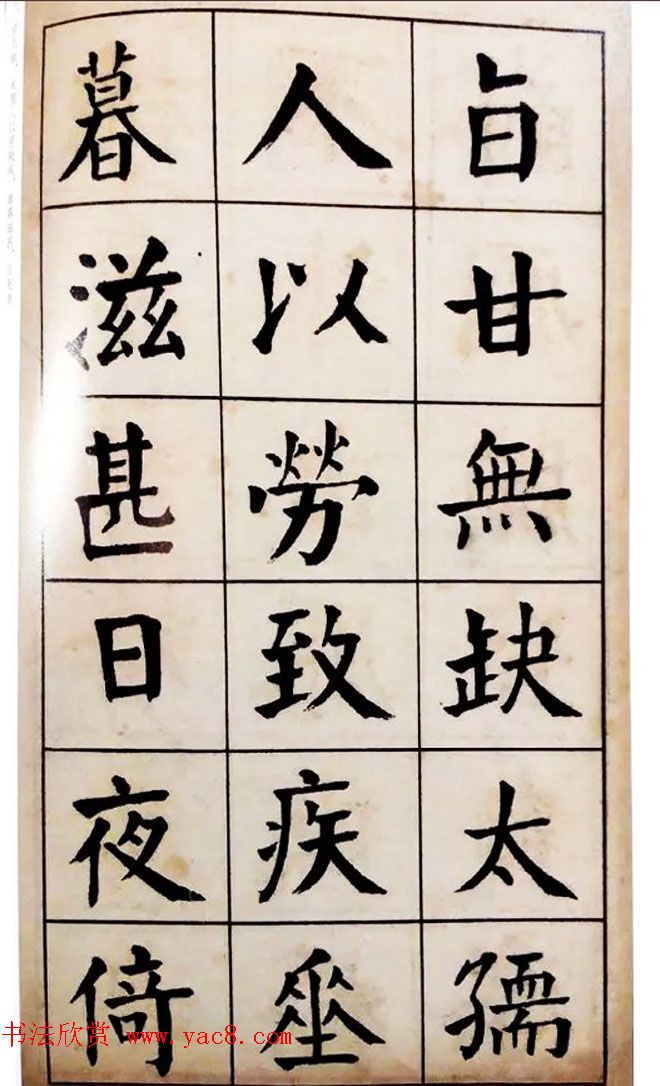 旨甘無缺太孺
人以勞致疾坐
暮滋甚日夜倚
书法欣赏 www.yac8.com